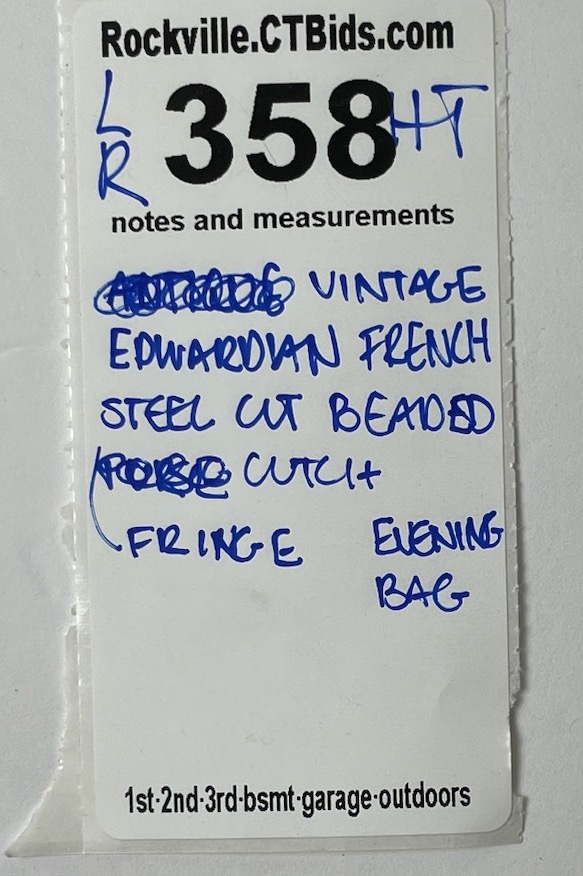 Rockville.CTBids.com
L
R
358 HT
notes and measurements
ANTIQUE VINTAGE
EDWARDIAN FRENCH
STEEL CUT BEADED
CUTCH
FRINGE EVENING
BAG
1st-2nd-3rd-bsmt-garage-outdoors